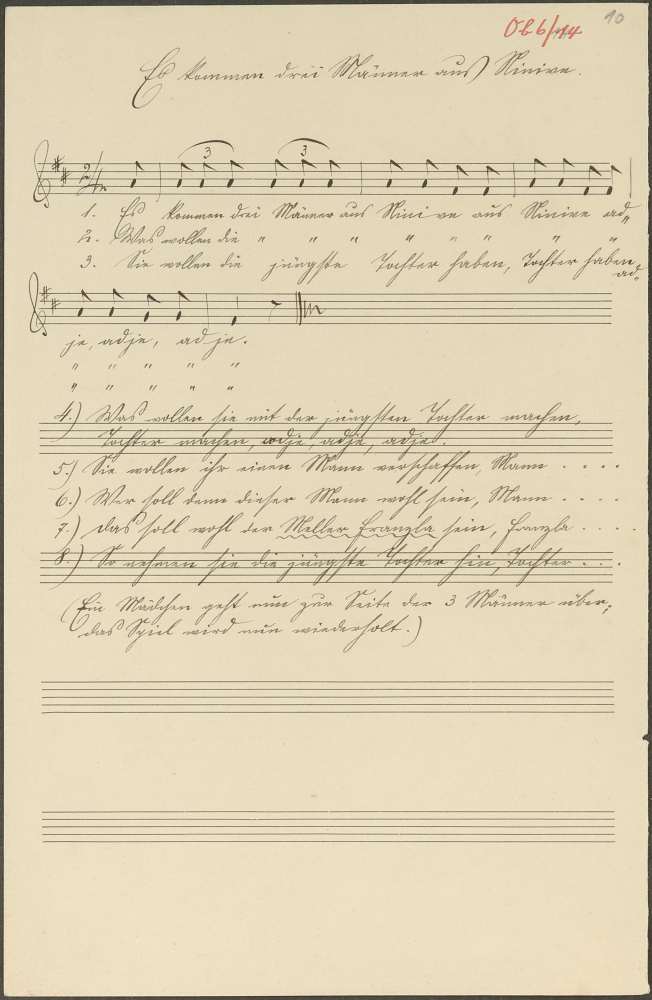 Ob 6/14
10
Es kommen drei Männer aus Ninive.
3 3
2/4
1. Es kommen drei Männer aus Nini ve aus Ninive ad„
2. Was wollen die " " " " " " " "
3. Sie wollen die jüngste Tochter haben, Tochter haben,
ad„
je, adje, ad je.
" " " " "
" " " " "
4.) Was wollen sie mit der jüngsten Tochter machen,
Tochter machen, adje, adje, adje.
5.) Sie wollen ihr einen Mann verschaffen, Mann . . . .
6.) Wer soll denn dieser Mann wohl sein, Mann . . . .
7.) Das soll wohl der Meller Franzla sein, Franzla . . . .
8.) So nehmen sie die jüngste Tochter hin, Tochter . . .
(Ein Mädchen geht nun zur Seite der 3 Männer über;
das Spiel wird nun wiederholt.)